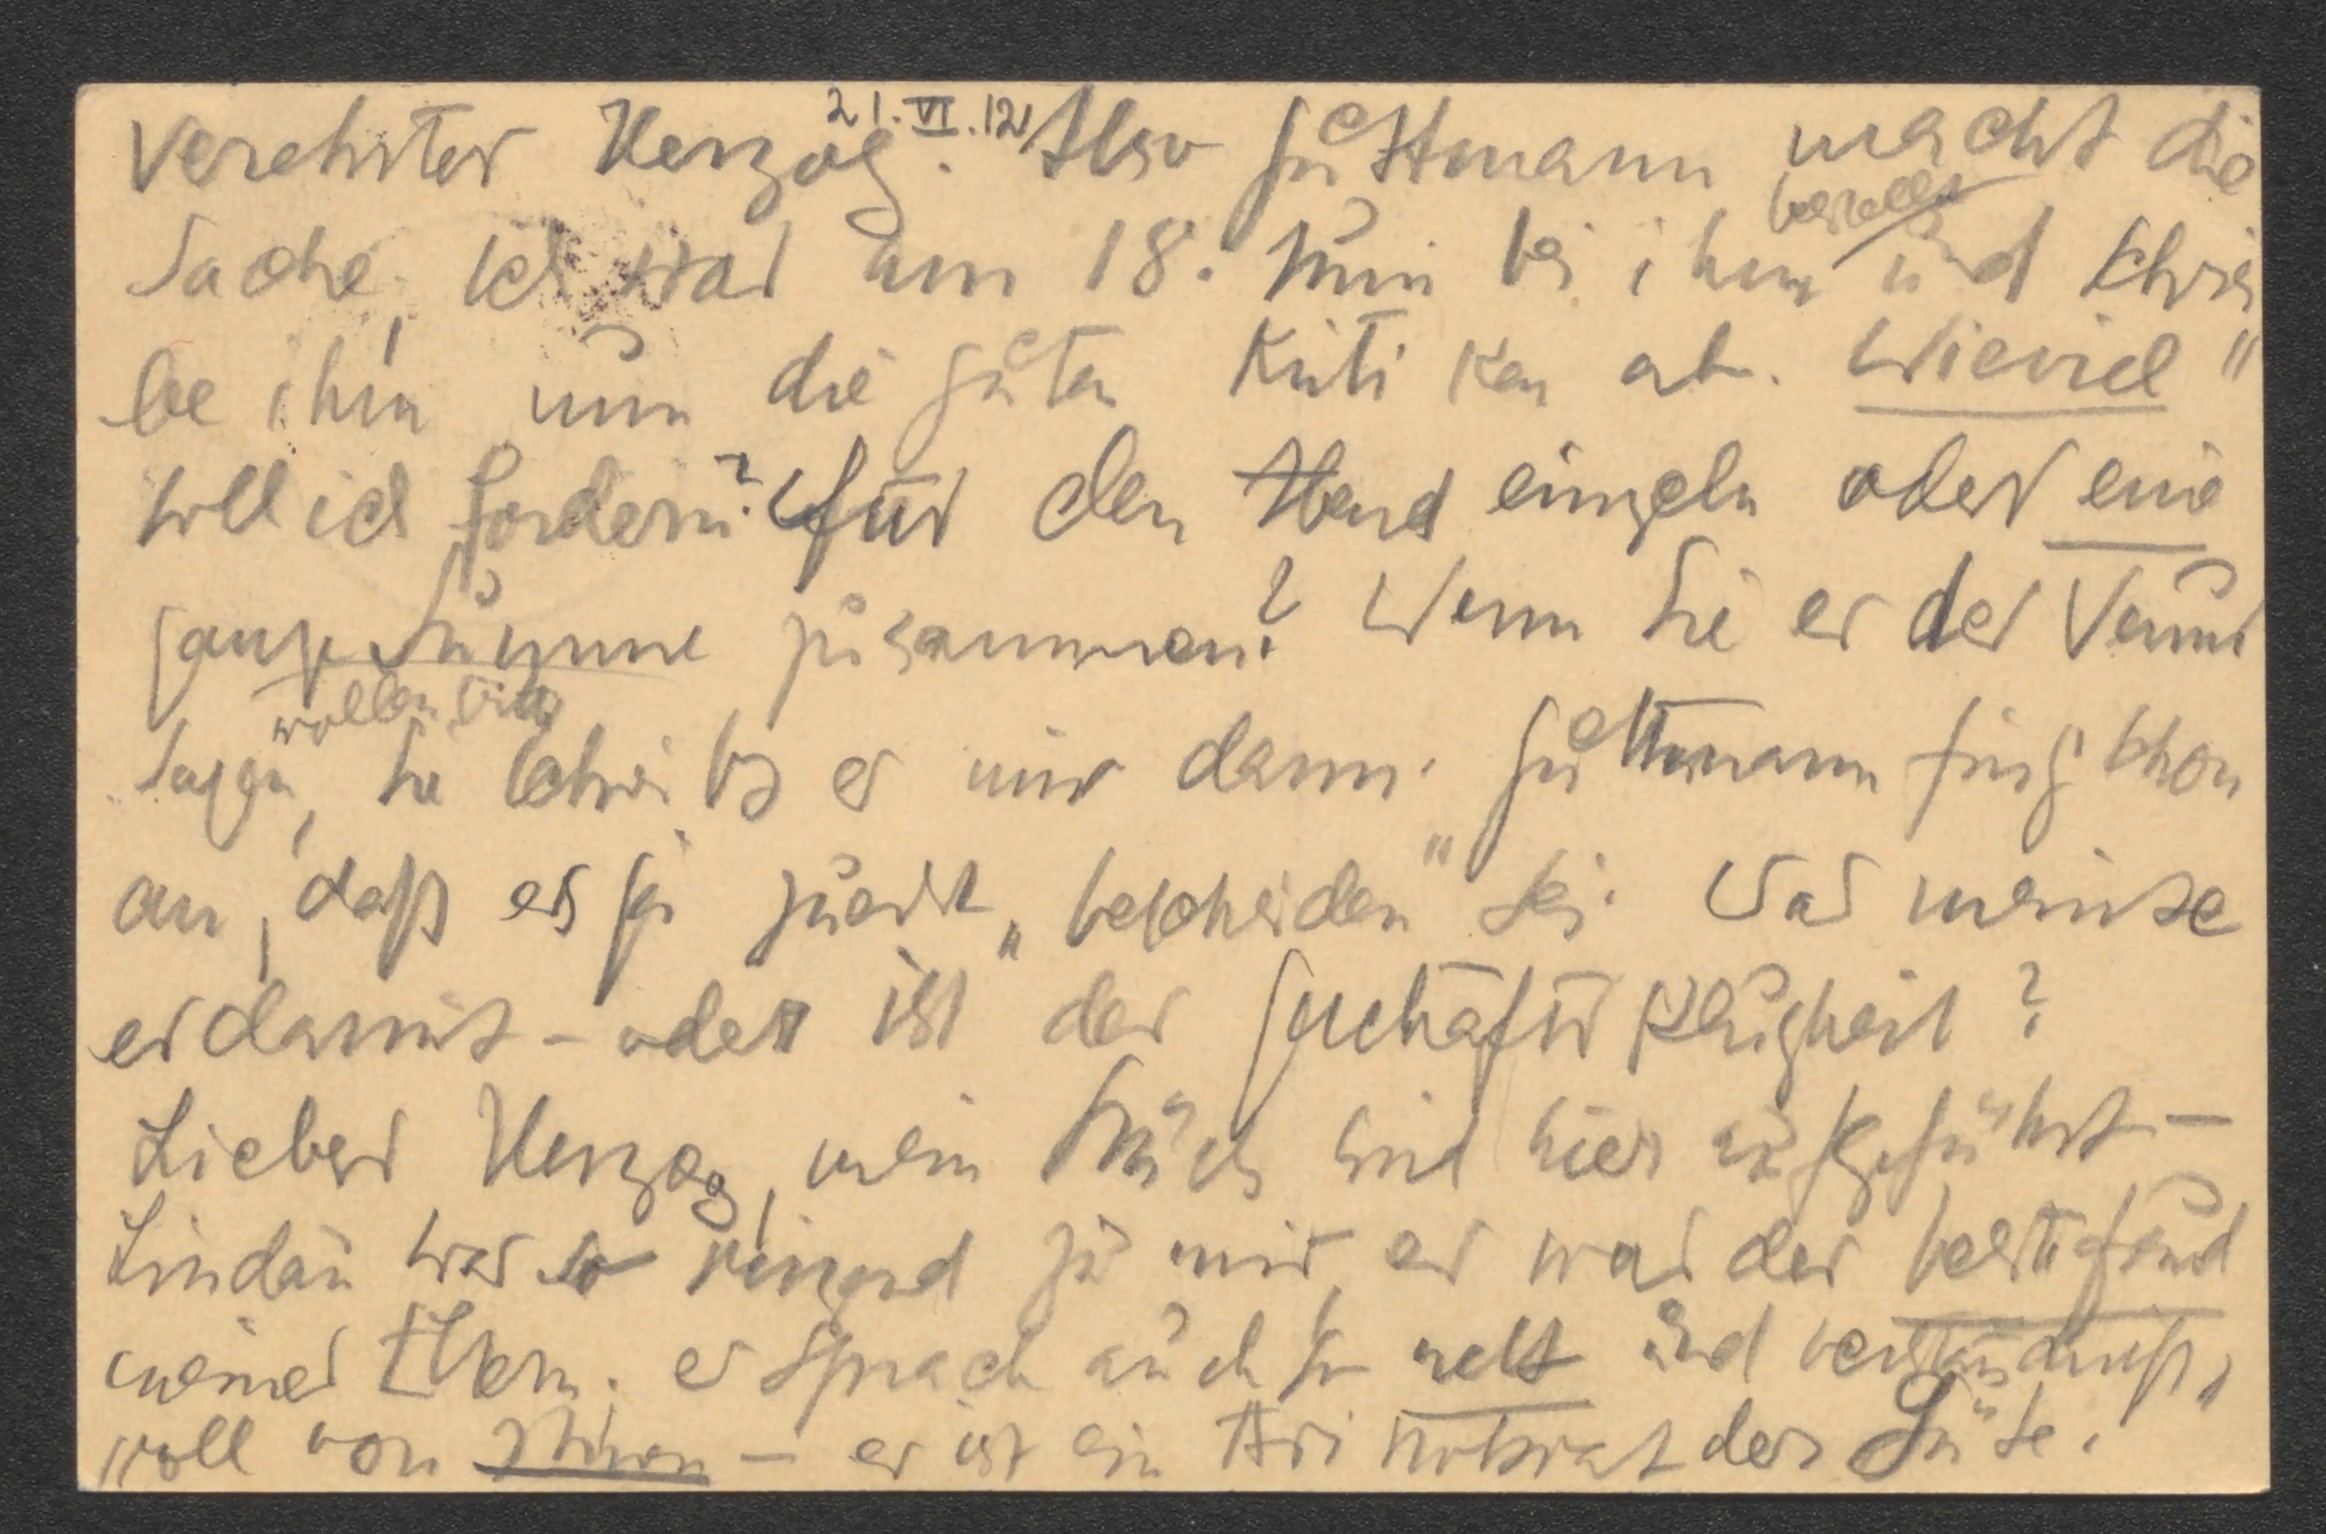 21.VI.12
Verehrter Herzog. Also Guttmann macht die
Sache, ich war am 18. Juni bei ihm und schrei
be ihm nun die guten Kritiken ab. Wieviel"
soll ich fordern? für den Abend einzeln oder eine
ganze Summe zusammen? Wenn Sie es der
wollen
sagen, Sie schreiben es mir dann. Guttmann fing schon
an, daß es ja zuerst „bescheiden" sei. Was meinte
er damit – oder ist das Geschäftsklugheit?
Lieber Herzog, mein Stück wird hier aufgeführt –
Lindau war so reizend zu mir, er war der beste Freund
meiner Eltern. er sprach auch so nett und verständniß,,
voll von Ihnen – er ist ein Aristokrat der Güte.